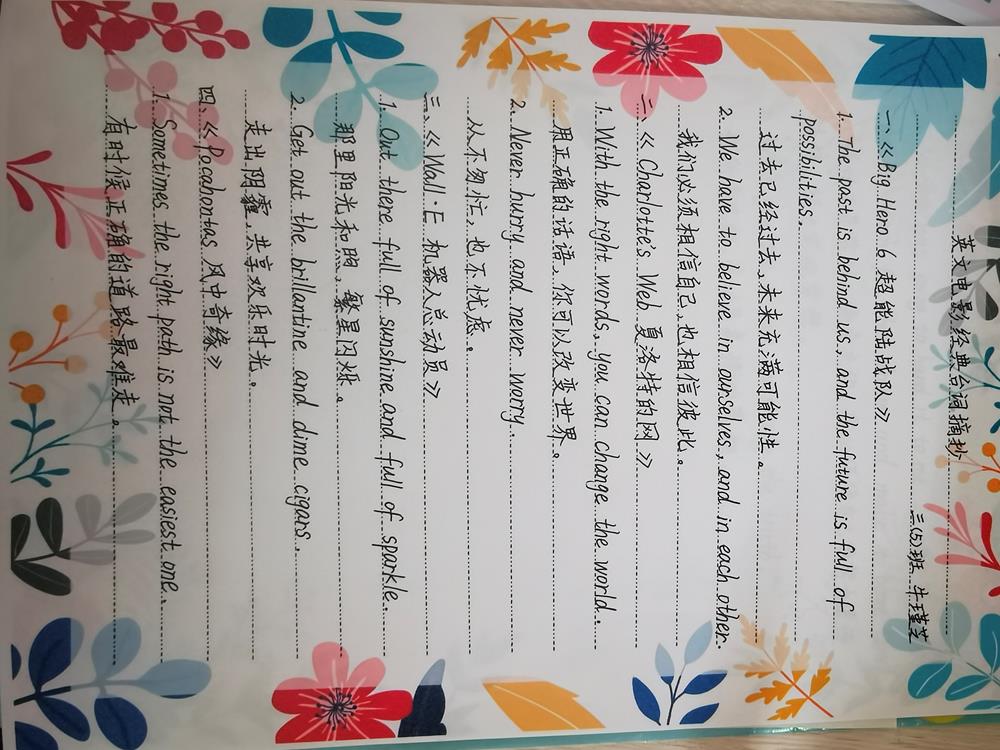 英文电影经典台词摘抄
三(5)班 牛瑾芝
一、《Big Hero 6 超能陆战队》
1. The past is behind us, and the future is full of
possibilities.
过去已经过去,未来充满可能性。
2. We have to believe in ourselves, and in each other.
我们必须相信自己,也相信彼此。
二、《Charlotte's Web 夏洛特的网》
1. With the right words, you can change the world.
用正确的话语,你可以改变世界。
2. Never hurry and never worry.
从不匆忙,也不忧虑。
三、《Wall·E 机器人总动员》
1. Out there full of sunshine and full of sparkle.
那里阳光和煦,繁星闪烁。
2. Get out the brillantine and dime cigars.
走出阴霾,共享欢乐时光。
四、《Pocahontas 风中奇缘》
1. Sometimes the right path is not the easiest one.
有时候正确的道路最难走。